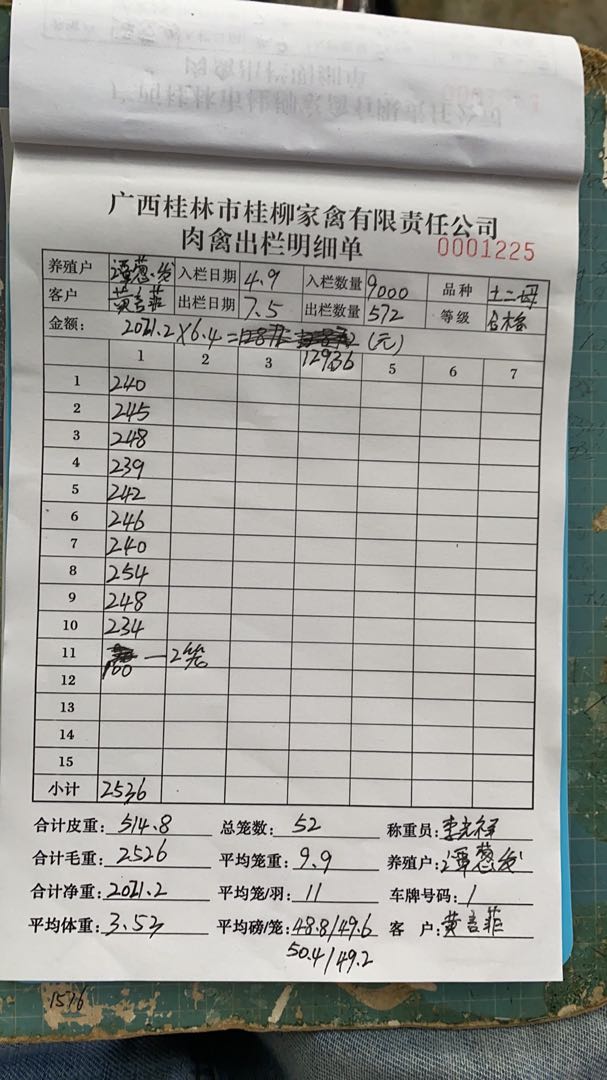 广西桂林市桂柳家禽有限责任公司
肉禽出栏明细单 0001225
养殖户 入栏日期 4.9 入栏数量 9000 品种 土二母
客户 出栏日期 7.5 出栏数量 572 等级 合格
金额: 2021.2×6.4= (元)
12936
1 2 3 5 6 7
1 240
2 245
3 248
4 239
5 242
6 246
7 240
8 254
9 248
10 234
11 100 — 2笼
12
13
14
15
小计 2536
合计皮重: 514.8 总笼数: 52 称重员:
合计毛重: 2526 平均笼重: 9.9 养殖户:
合计净重: 2021.2 平均笼/羽: 11 车牌号码: 1
平均体重: 3.53 平均磅/笼: 48.8/49.6 客户:
50.4/49.2
1576